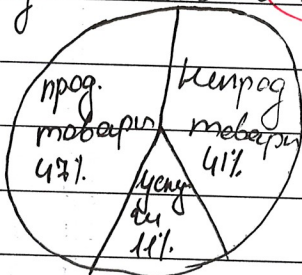 прод.
товары
47%
Непрод
товары
41%
услу
ги
11%